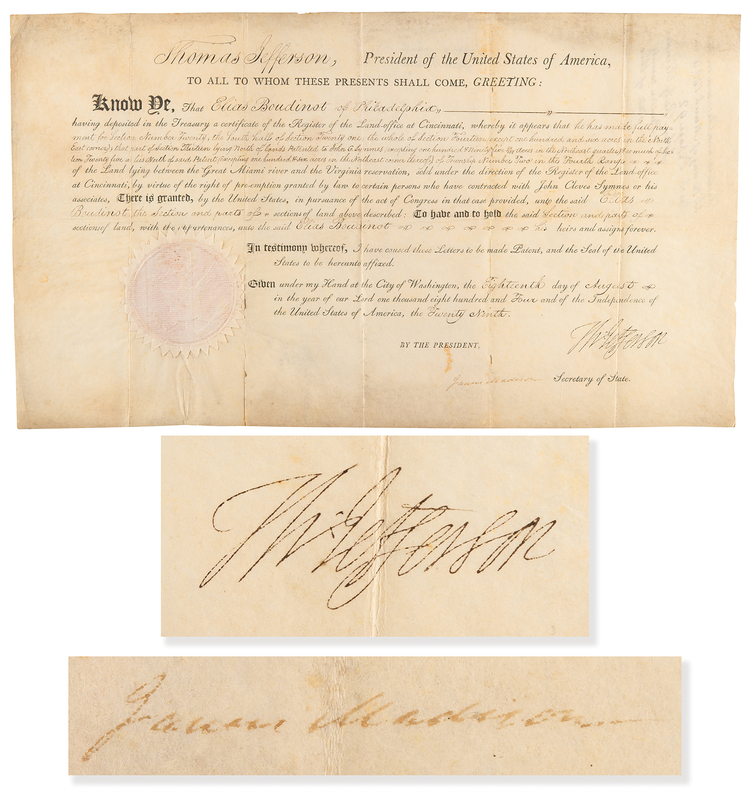 Thomas Jefferson, President of the United States of America,
TO ALL TO WHOM THESE PRESENTS SHALL COME, GREETING:
Know Ye, That Elias Boudinot of Philadelphia,
having deposited in the Treasury a certificate of the Register of the Land-office at Cincinnati, whereby it appears that he has made full pay-
ment for Section Number Twenty, the South half of Section Twenty one, the whole of Section Fourteen except one hundred and acres in the North
East corner) that part of Section Thirteen lying North of Lands Patented to John C Symmes, excepting one hundred & acres in the Northeast quarter) & so much of Sec-
tion Twenty five as lies North of said Patent, excepting one hundred acres in the Northeast corner thereof) of Township Number Two in the Fourth Range
of the Land lying between the Great Miami river and the Virginia reservation, sold under the direction of the Register of the Land-office
at Cincinnati, by virtue of the right of pre-emption granted by law to certain persons who have contracted with John Cleves Symmes or his
associates, There is granted, by the United States, in pursuance of the act of Congress in that case provided, unto the said Elias
Boudinot the Section and parts of sections of land above described: To have and to hold the said Section and parts of
sections of land, with the appurtenances, unto the said Elias Boudinot his heirs and assigns forever.
In testimony whereof, I have caused these Letters to be made Patent, and the Seal of the United
States to be hereunto affixed.
Given under my Hand at the City of Washington, the Eighteenth day of August
in the year of our Lord one thousand eight hundred and Four and of the Independence of
the United States of America, the Twenty Ninth.
Th: Jefferson
BY THE PRESIDENT,
James Madison Secretary of State.
Th: Jefferson
James Madison